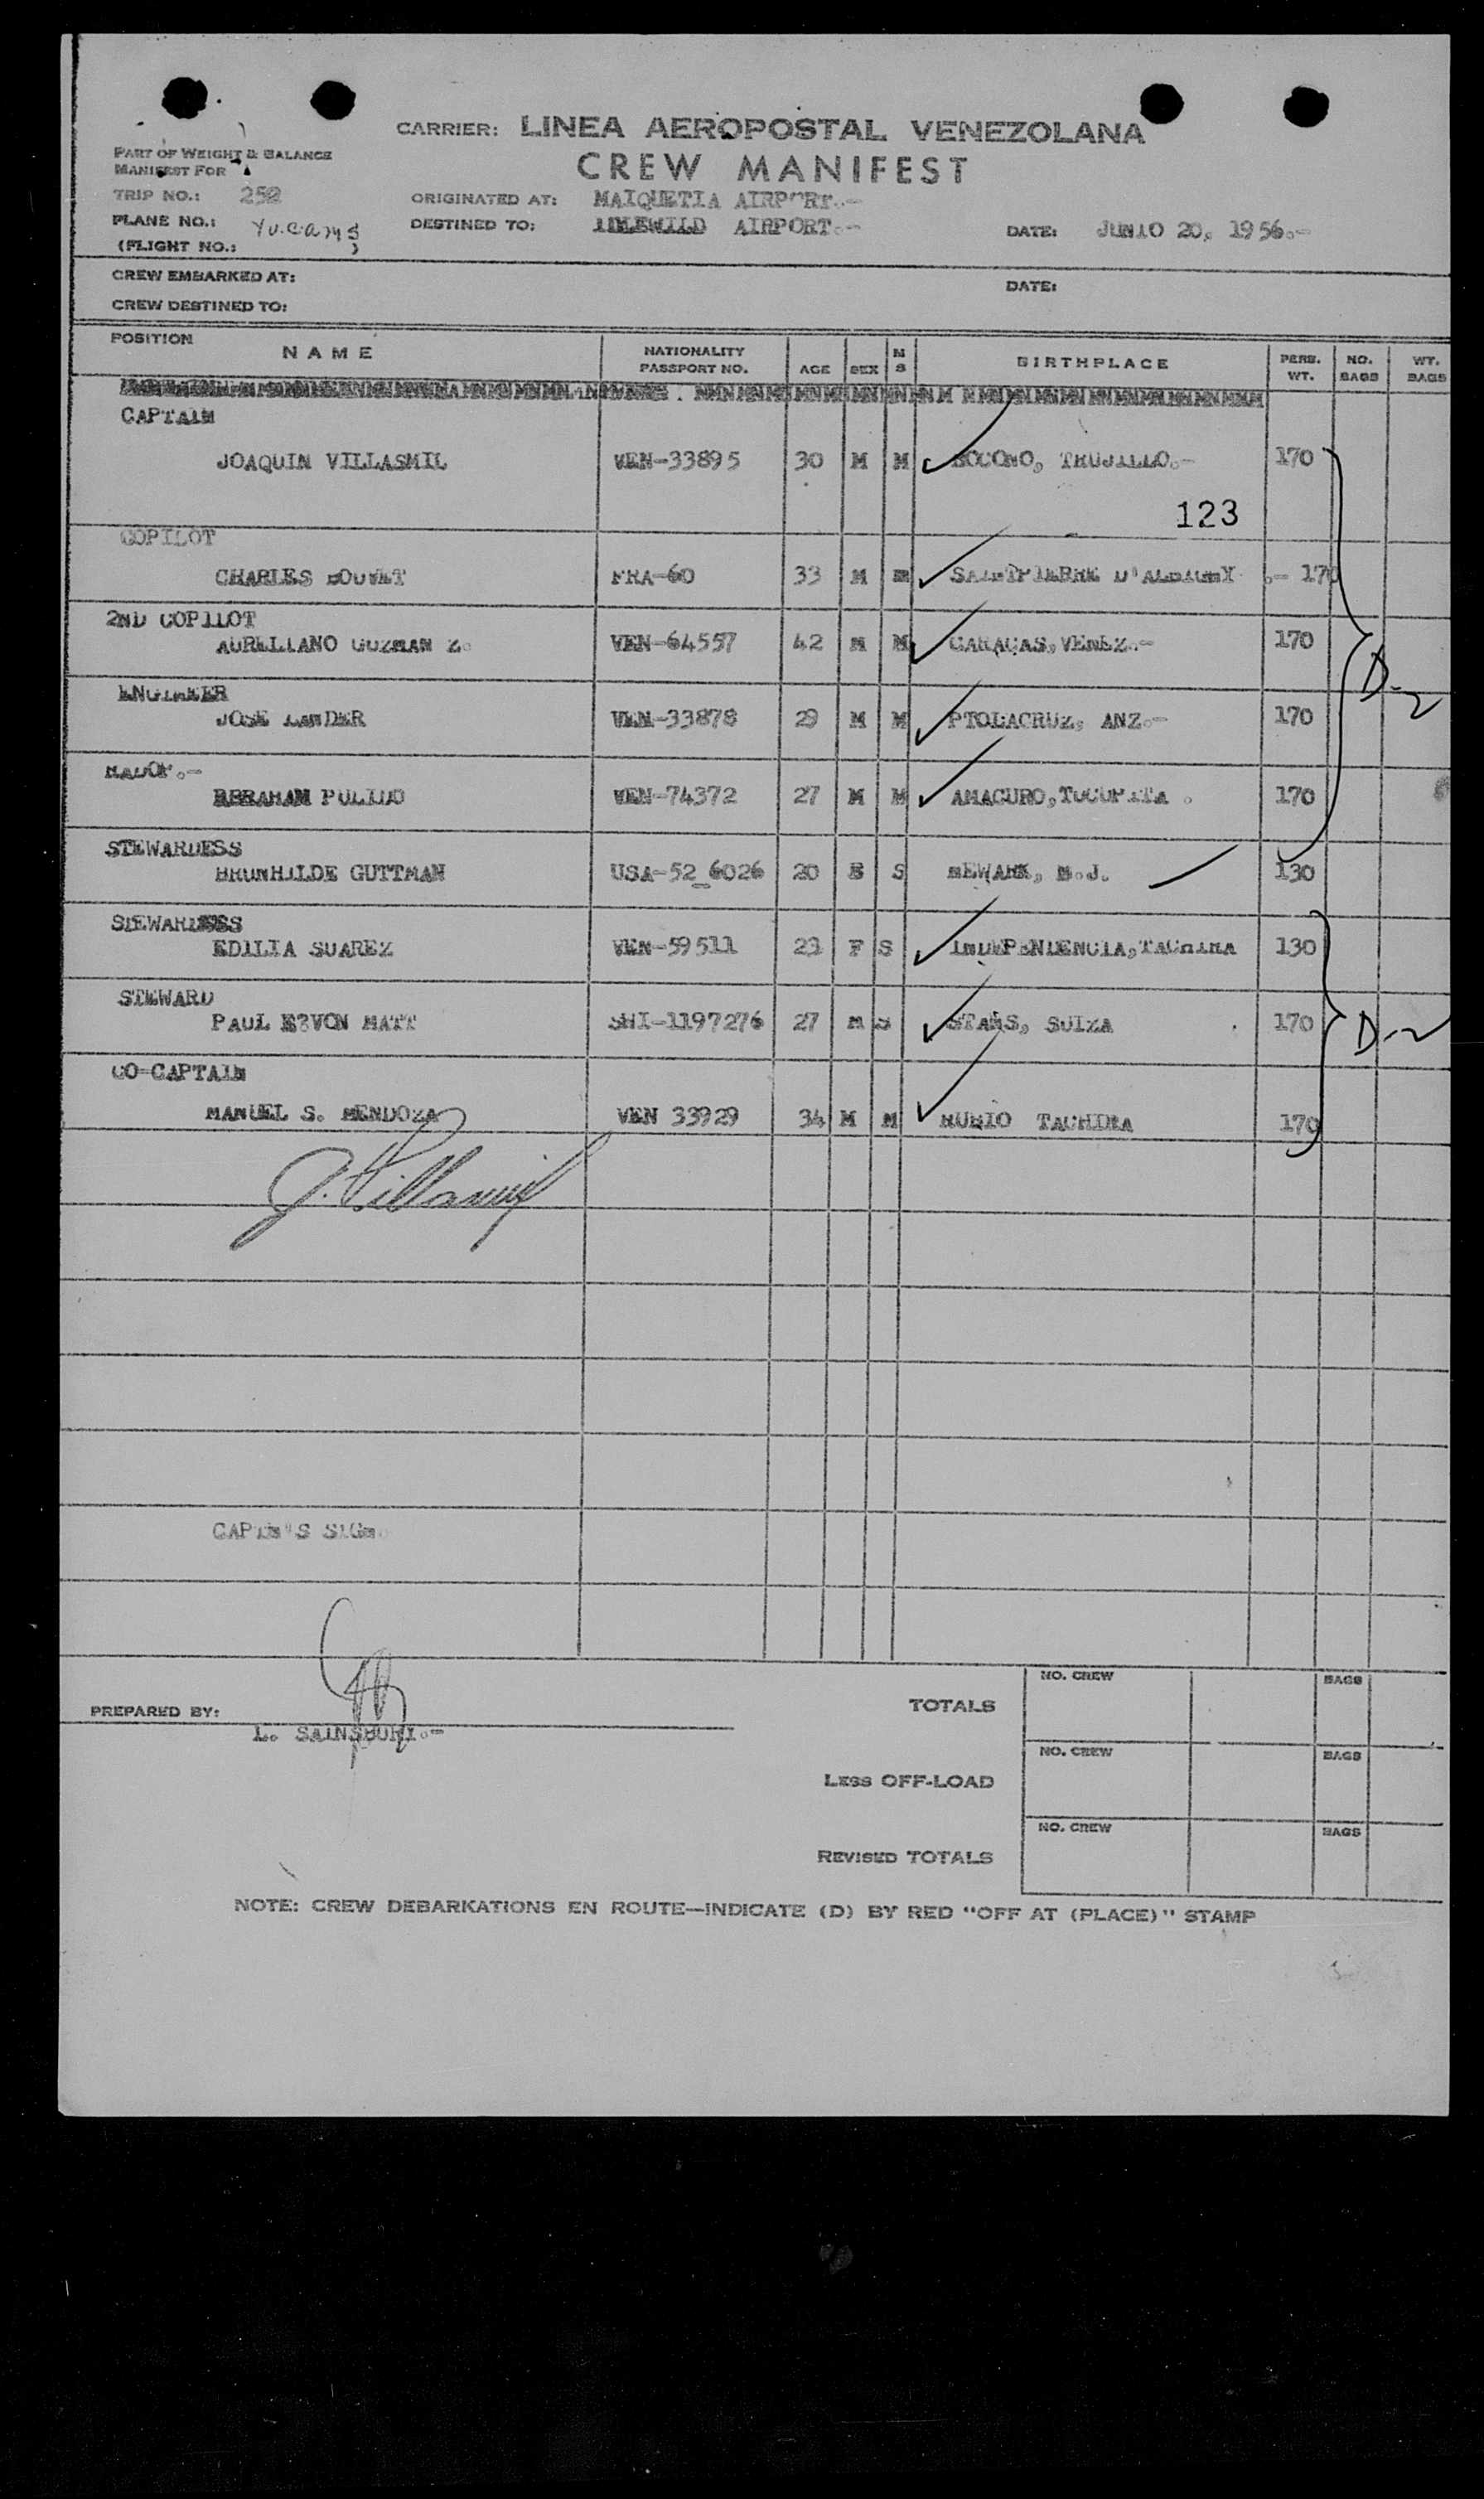 CARRIER: LINEA AEROPOSTAL VENEZOLANA
CREW MANIFEST
PART OF WEIGHT & BALANCE
MANIFEST FOR
TRIP NO.: 252
ORIGINATED AT: MAIQUETIA AIRPORT.-
PLANE NO.:
DESTINED TO: IDLEWILD AIRPORT.-
DATE: JUNIO 20, 1956.-
(FLIGHT NO.: )
CREW EMBARKED AT:
DATE:
CREW DESTINED TO:
POSITION NAME NATIONALITY PASSPORT NO. AGE SEX M S BIRTHPLACE PERS. WT. NO. BAGS WT. BAGS
CAPTAIN
JOAQUIN VILLASMIL VEN-33895 30 M M BOCONO, TRUJILLO.- 170
123
COPILOT
CHARLES BOUVET FRA-60 33 M M .- 170
2ND COPILOT
AURELIANO GUZMAN Z. VEN-64557 42 M M CARACAS, VENEZ.- 170
D-2
ENGINEER
JOSE LANDER VEN-33878 29 M M PTOLACRUZ, ANZ.- 170
RADOP.-
ABRAHAM PULIDO VEN-74372 27 M M AMACURO, TUCUPITA . 170
STEWARDESS
BRUNHILDE GUTTMAN USA-52_6026 20 S NEWARK, N.J. 130
STEWARDESS
EDILIA SUAREZ VEN-59511 23 F S INDEPENDENCIA, TACHIRA 130
STEWARD
PAUL VON MATT SHI-1197276 27 M S STANS, SUIZA 170
D-2
CO-CAPTAIN
MANUEL S. MENDOZA VEN 33929 34 M M RUBIO TACHIRA 170
J. Villasmil
CAPTN'S SIGN.
PREPARED BY:
L. SAINSBURY.-
TOTALS NO. CREW BAGS
LESS OFF-LOAD NO. CREW BAGS
REVISED TOTALS NO. CREW BAGS
NOTE: CREW DEBARKATIONS EN ROUTE—INDICATE (D) BY RED "OFF AT (PLACE)" STAMP